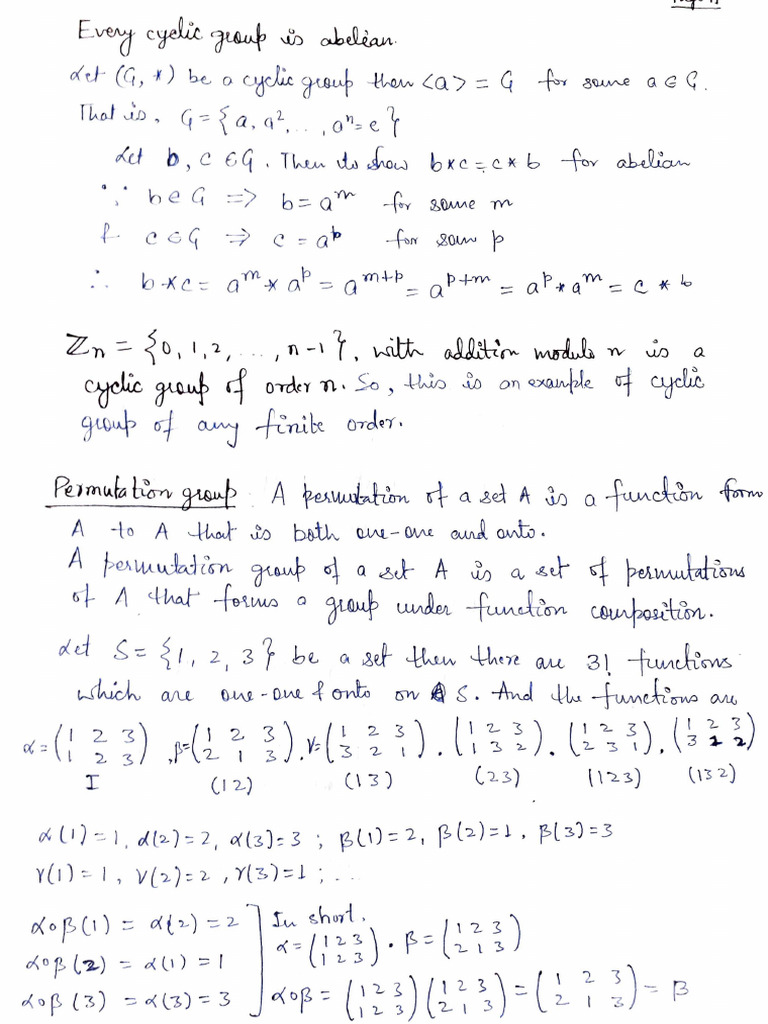 Every cyclic group is abelian.
Let (G, *) be a cyclic group then <a> = G for some a ∈ G.
That is, G = {a, a², ..., aⁿ=e}
Let b, c ∈ G. Then to show b*c = c*b for abelian
∵ b∈G => b = aᵐ for some m
& c∈G => c = aᵖ for som p
∴ b*c = aᵐ * aᵖ = aᵐ⁺ᵖ = aᵖ⁺ᵐ = aᵖ * aᵐ = c * b
ℤn = {0, 1, 2, ..., n-1}, with addition modulo n is a
cyclic group of order n. So, this is an example of cyclic
group of any finite order.
Permutation group A permutation of a set A is a function form
A to A that is both one-one and onto.
A permutation group of a set A is a set of permutations
of A that forms a group under function composition.
Let S = {1, 2, 3} be a set then there are 3! functions
which are one-one & onto on S. And the functions are
α = (1 2 3 / 1 2 3), β = (1 2 3 / 2 1 3), γ = (1 2 3 / 3 2 1), (1 2 3 / 1 3 2), (1 2 3 / 2 3 1), (1 2 3 / 3 1 2)
I (12) (13) (23) (123) (132)
α(1)=1, α(2)=2, α(3)=3 ; β(1)=2, β(2)=1, β(3)=3
γ(1)=1, γ(2)=2, γ(3)=1 ; ...
α∘β(1) = α(2) = 2
α∘β(2) = α(1) = 1
α∘β(3) = α(3) = 3
In short,
α = (1 2 3 / 1 2 3) . β = (1 2 3 / 2 1 3)
α∘β = (1 2 3 / 1 2 3) (1 2 3 / 2 1 3) = (1 2 3 / 2 1 3) = β